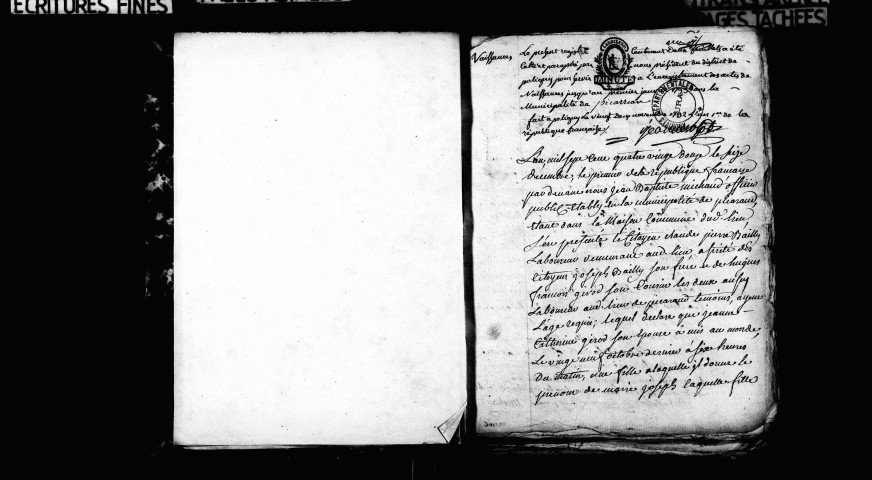 ECRITURES FINES
TRANSPARENCE
PAGES TACHEES
Naissances
Le present registre Contenant feuillets a été
Cotté et paraphé par nous président du district de
poligny pour servir à L'enregistrement des actes de
Naissances jusqu'au premier dans la
Municipalité de picarreau
fait a poligny Le vingt novembre 1792 L'an 1er de la
république françoise
MINUTE
L'an mil sept Cent quatre vingt douze le seize
decembre, le premier de la republique francaise
par devant nous jean Baptiste michaud officier
public Etably en la municipalité de picaraud
Etant dans la Maison Commune dud. lieu
s'est présenté le Citoyen claude pierre Bailly
Laboureur demeurant aud. lieu assisté des
Citoyens joseph Bailly son frere et de hugues
francois girod son Cousin les deux aussy
Laboureur aud. lieu de picaraud temoins, ayant
L'age requis; lequel declare que jeanne
Catherine girod son Epouse à mis au monde,
Le vingt neuf octobre dernier à six heures
Du matin, une fille a laquelle il donne le
prenom de marie joseph laquelle fille